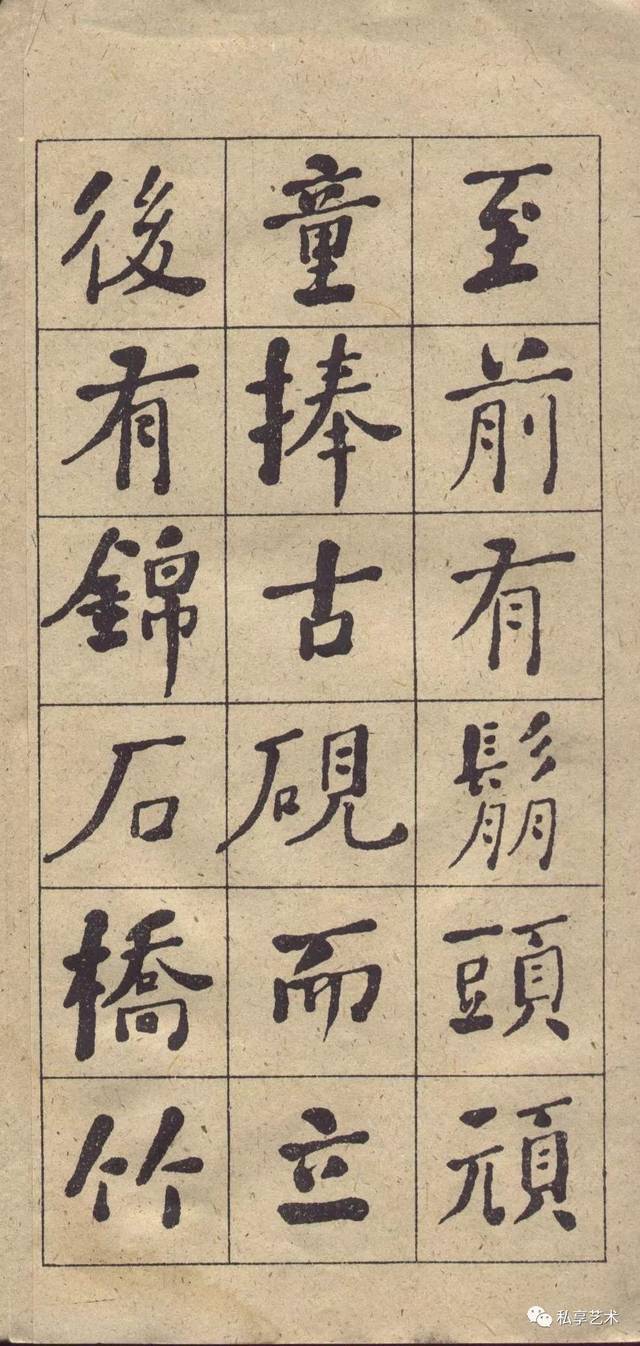 至前有鬅頭頑
童捧古硯而立
後有錦石橋竹
私享艺术